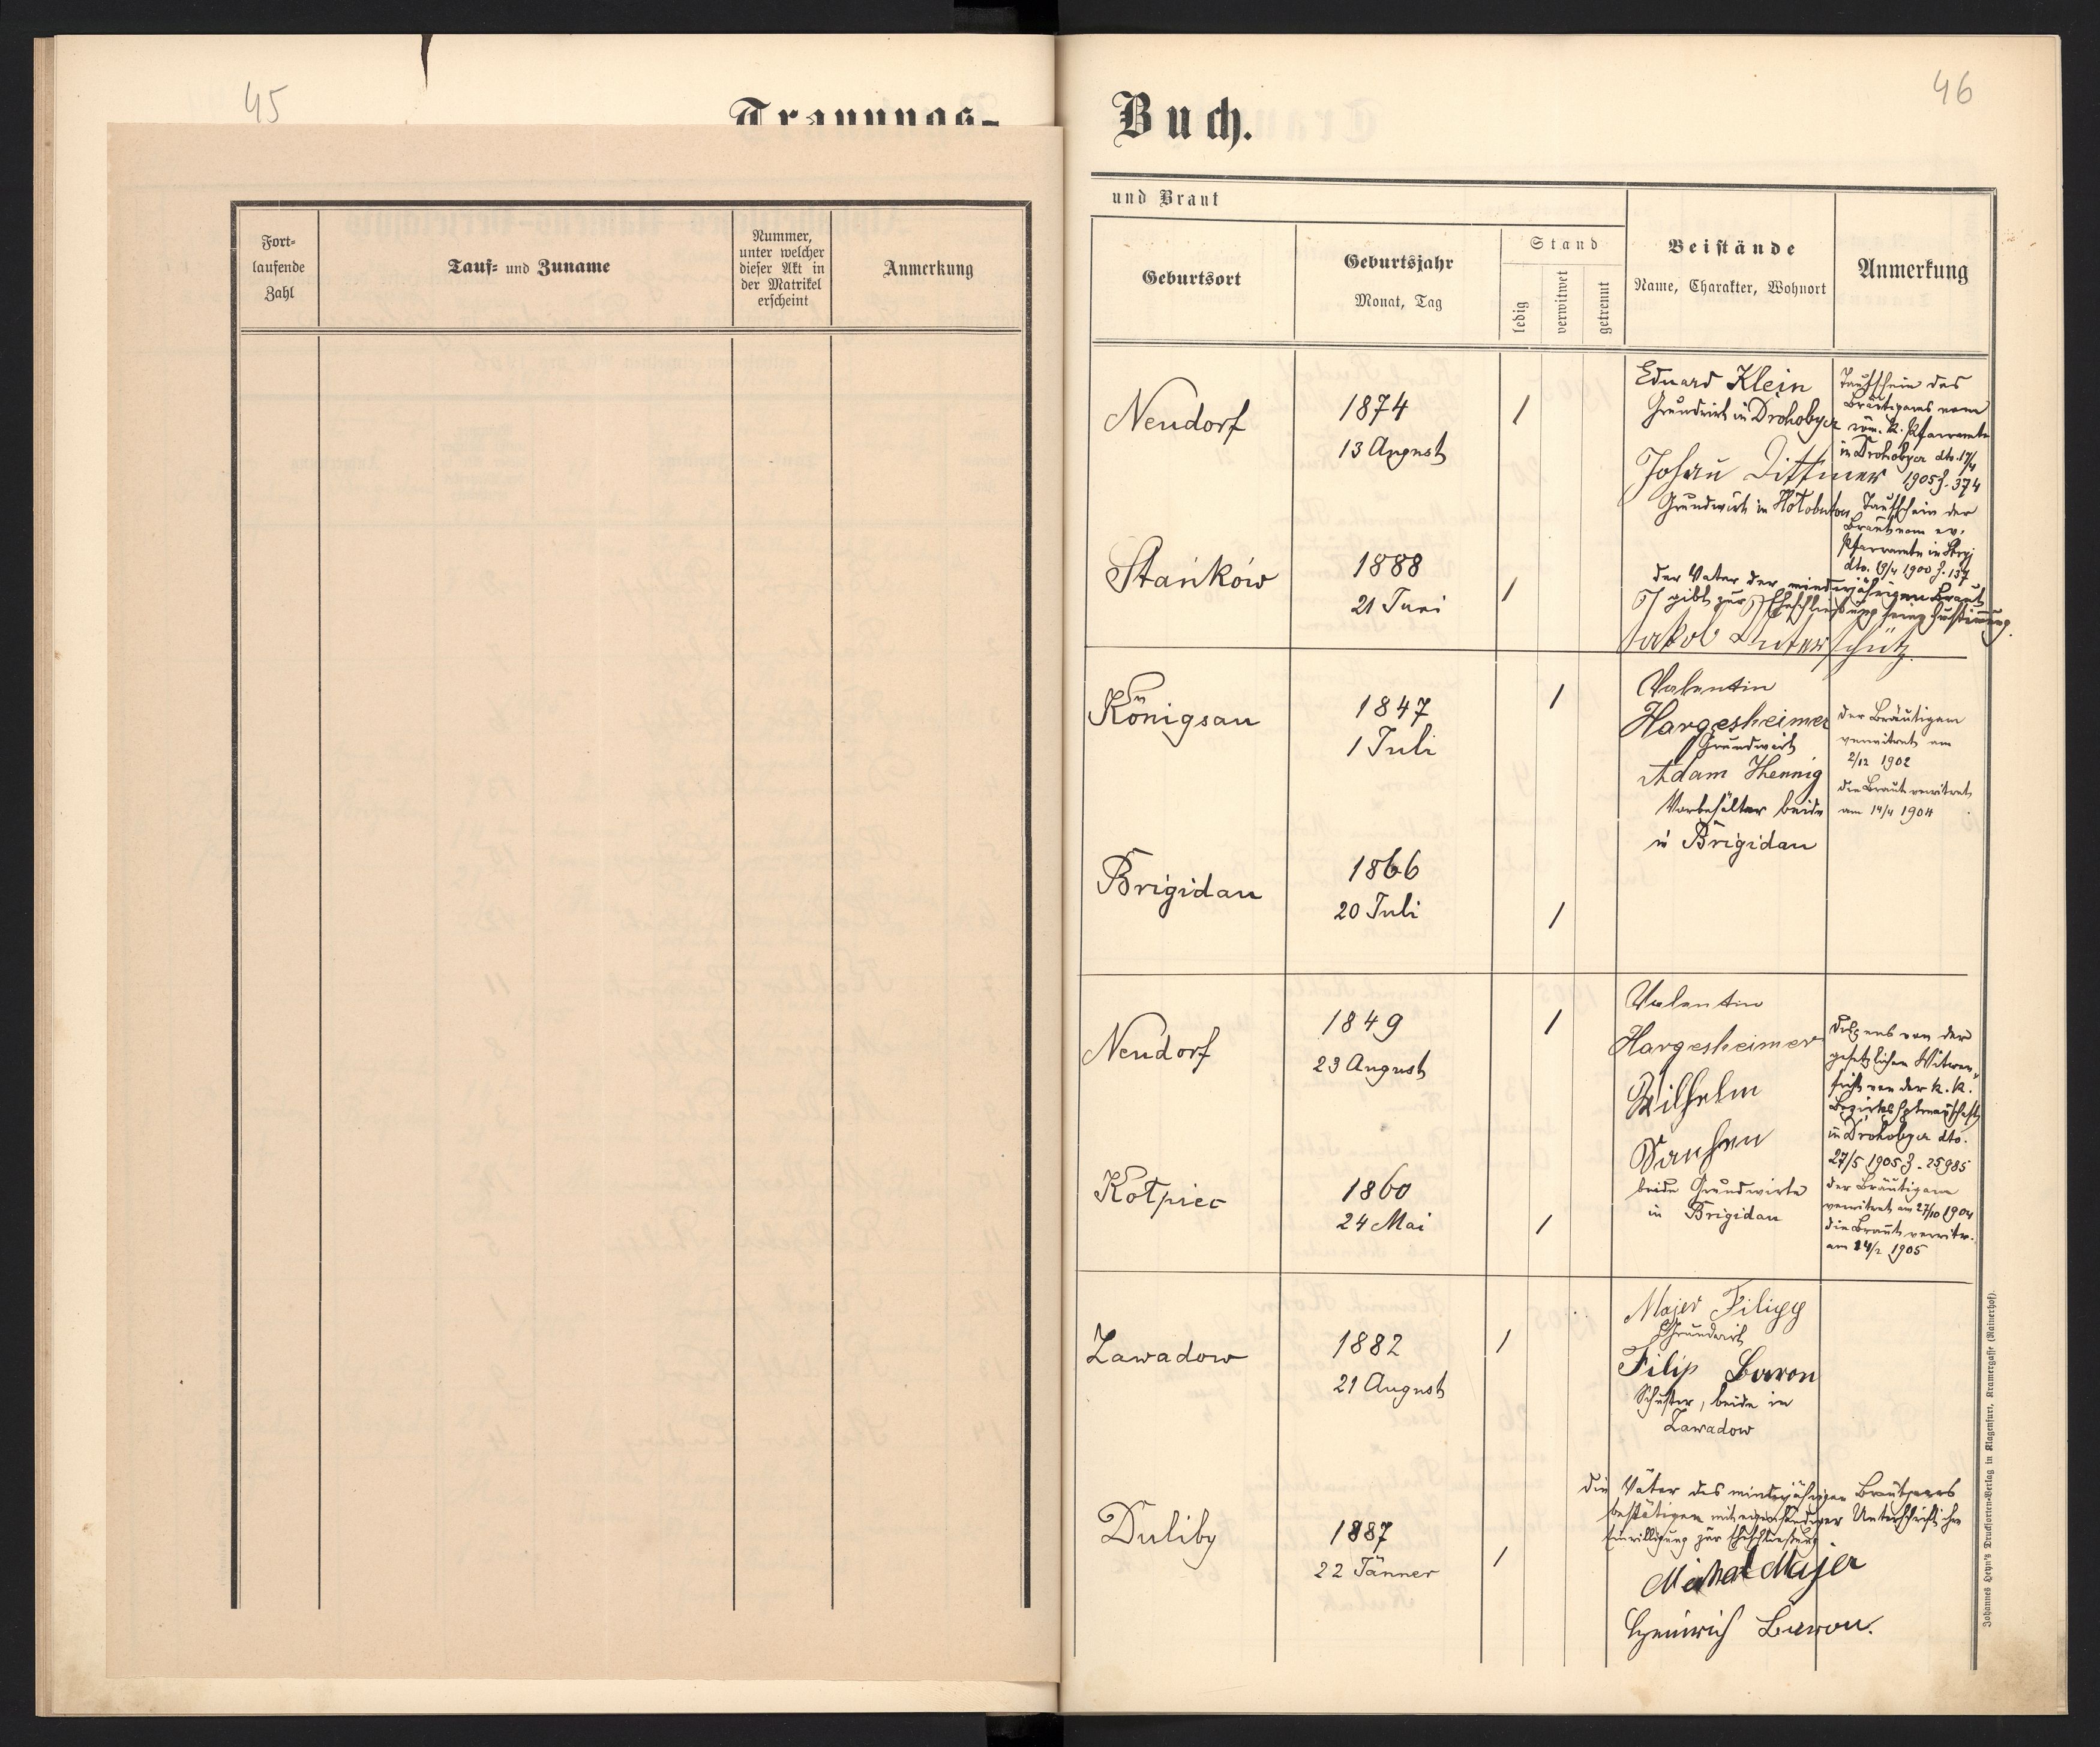 45
Trauungs-
Fort-
laufende
Zahl
Tauf- und Zuname
Nummer,
unter welcher
dieser Akt in
der Matrikel
erscheint
Anmerkung
46
Buch.
und Braut
Geburtsort
Geburtsjahr
Monat, Tag
Stand
ledig
verwitwet
getrennt
Beistände
Name, Charakter, Wohnort
Anmerkung
Neudorf
1874
13 August
/
Eduard Klein
Grundwirt in Drohobycz
Johan Dittmer
Grundwirt in
Taufschein des
Bräutigams vom
röm. k. Pfarramte
in Drohobycz dto. 17/4
1905 Z. 374
Taufschein der
Braut vom ev.
Pfarramte in Stryj
dto. 19/4 1900 Z. 137
Stańków
1888
21 Juni
/
Der Vater der minderjährigen Braut
gibt zur Eheschließung seine Zustimmung.
Jakob Unterschütz.
Königsau
1847
1 Juli
/
Valentin
Hargesheimer
Grundwirt
Adam Hennig
Vorbehälter beide
in Brigidau
Der Bräutigam
verwitwet am
2/12 1902
die Braut verwitwet
am 14/4 1904
Brigidau
1866
20 Juli
/
Neudorf
1849
23 August
/
Valentin
Hargesheimer
Wilhelm
beide Grundwirte
in Brigidau
Dispens von der
gesetzlichen Witwen-
frist von der k. k.
Bezirkshptmannschaft
in Drohobycz dto.
27/5 1905 Z. 25985
der Bräutigam
verwitwet am 27/10 1904
die Braut verwitw.
am 24/2 1905
Kołpiec
1860
24 Mai
/
Zawadow
1882
21 August
/
Majer Filipp
Grundwirt
Filip Baron
Schuster, beide in
Zawadow
Duliby
1887
22 Jänner
/
Die Väter des minderjährigen Brautpaars
bestätigen mit eigenhändiger Unterschrift ihre
Einwilligung zur Eheschließung
Michal Majer
Heinrich Baron.
Johannes Heyn's Drucksorten-Verlag in Klagenfurt, Kramergasse (Rainerhof).